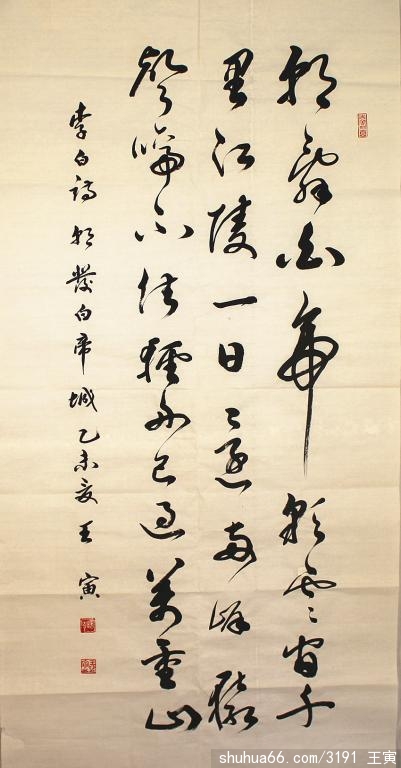 朝辞白帝彩雲間千
里江陵一日還兩岸猿
聲啼不住輕舟已過萬重山
李白詩朝發白帝城乙未夏王寅
shuhua66.com/3191 王寅